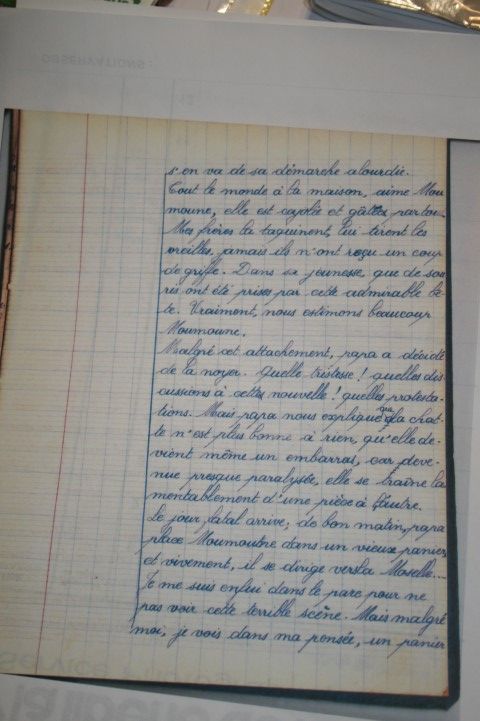 OBSERVATIONS :
s'en va de sa démarche alourdie.
Tout le monde à la maison, aime Mou
moune, elle est cajolée et gâtée par tou
Mes frères la taquinent, lui tirent les
oreilles, jamais ils n'ont reçu un coup
de griffe. Dans sa jeunesse, que de sou
ris ont été prises par cette admirable bê-
te. Vraiment, nous estimons beaucoup
Moumoune.
Malgré cet attachement, papa a décidé
de la noyer. Quelle tristesse ! quelles dis
cussions à cette nouvelle ! quelles protesta-
tions. Mais papa nous explique que la chat-
te n'est plus bonne à rien, qu'elle de-
vient même un embarras, car deve-
nue presque paralysée, elle se traîne la
mentablement d'une pièce à l'autre.
Le jour fatal arrive, de bon matin, papa
place Moumoune dans un vieux panier,
et vivement, il se dirige vers la Moselle...
Je me suis enfui dans le parc pour ne
pas voir cette terrible scène. Mais malgré
moi, je vois dans ma pensée, un panier